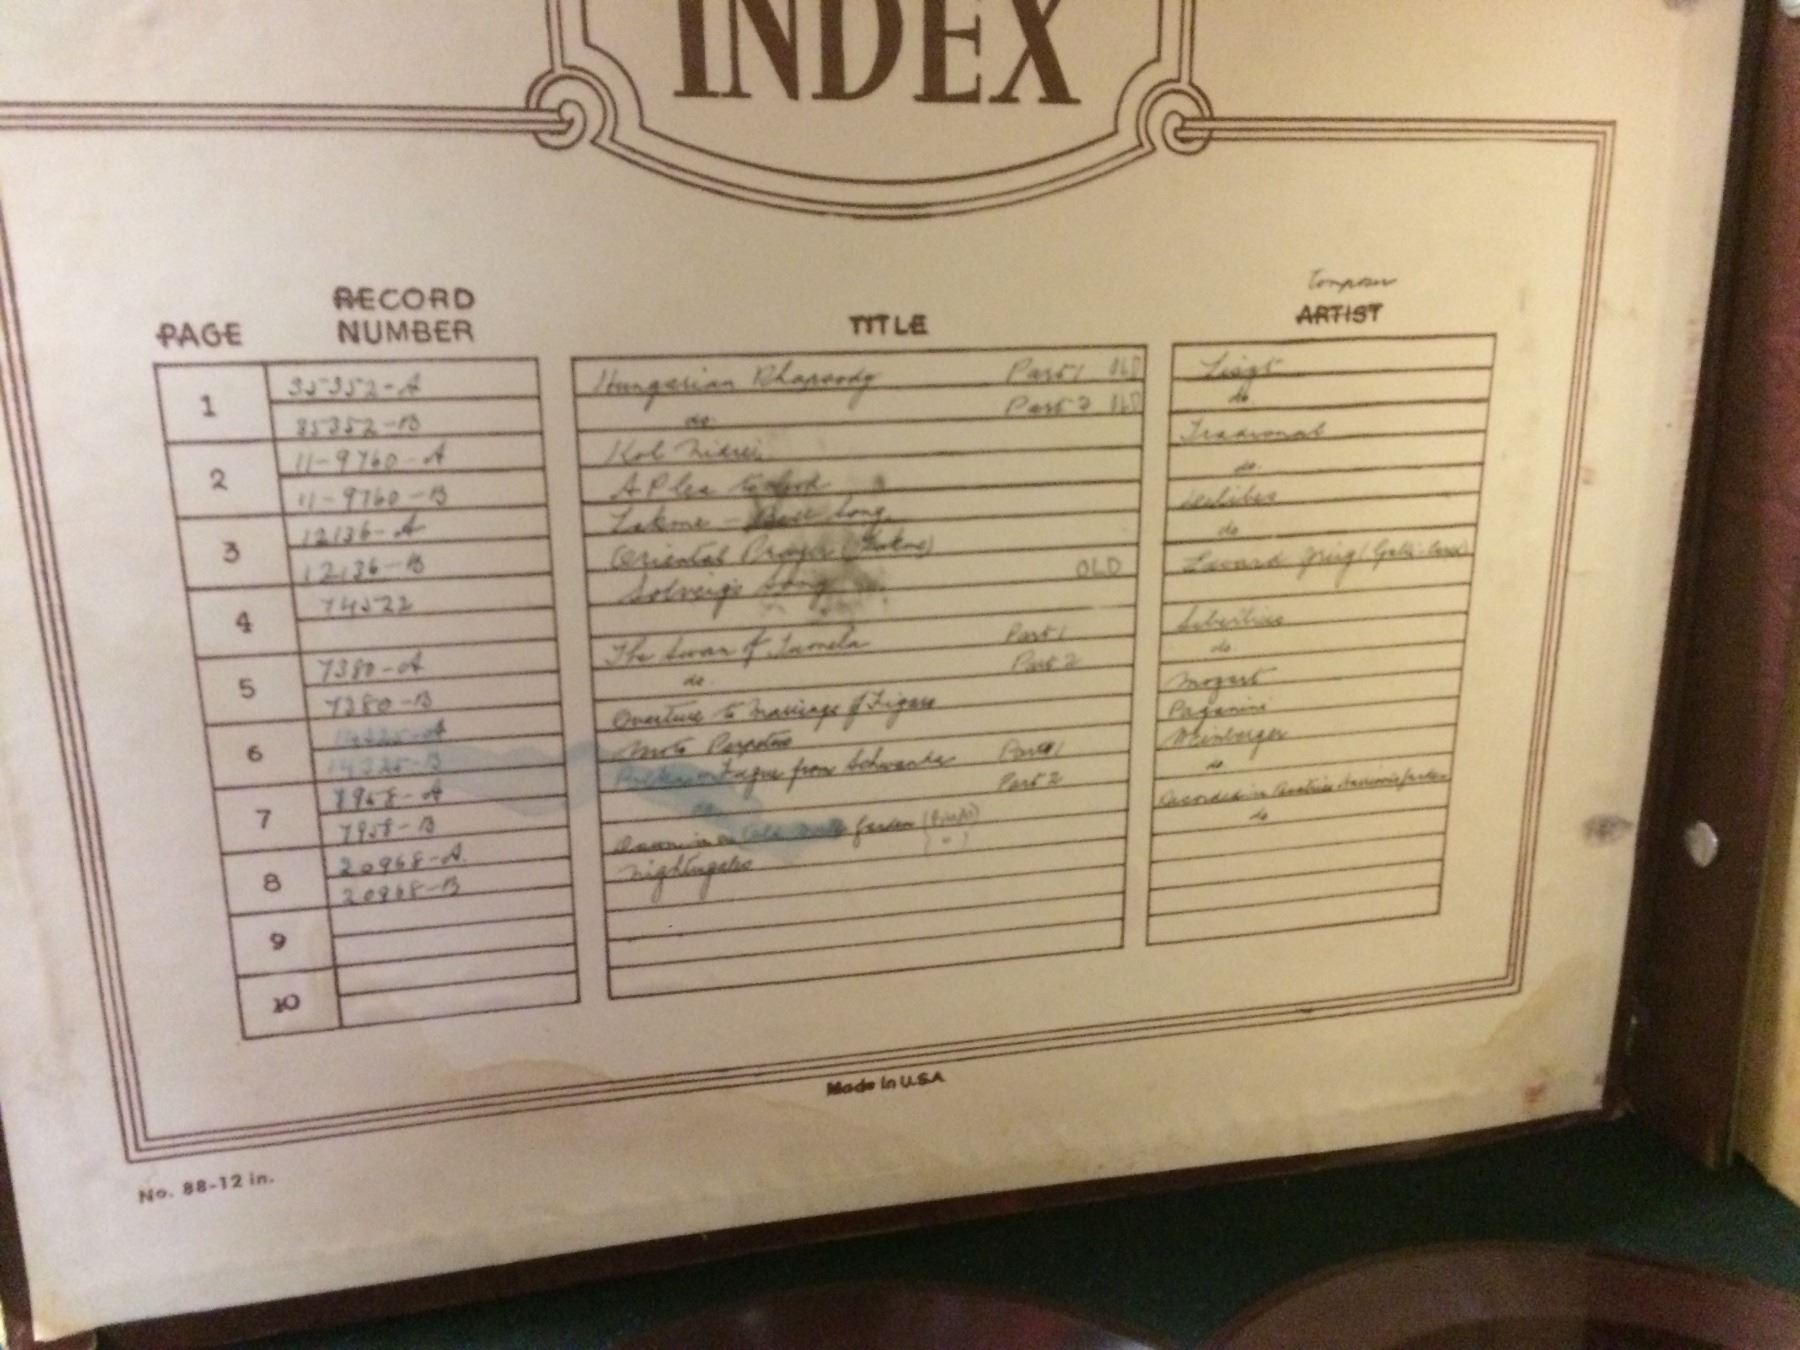 INDEX
Composer
PAGE RECORD NUMBER TITLE ARTIST
1 35352-A Hungarian Rhapsody Part 1 OLD Liszt
35352-B do. Part 2 OLD do
2 11-9760-A Kol Nidrei Tradional
11-9760-B A Plea to God do.
3 12136-A Lakme - Song Delibes
12136-B Oriental Prayer (Lakme) do
4 74522 Solveig's Song OLD Edvard Grieg
5 7380-A The Swan of Tuonela Part 1 Sibelius
7380-B do. Part 2 do.
6 14325-A Overture to Marriage of Figaro Mozart
14325-B Moto Perpetuo Paganini
7 7958-A Fugue from Schwanda Part 1 Weinberger
7958-B do Part 2 do
8 20968-A Dawn in an garden (Birds) Recorded in
20968-B Nightingales ( " ) do
9
10
Made in U.S.A.
No. 88-12 in.